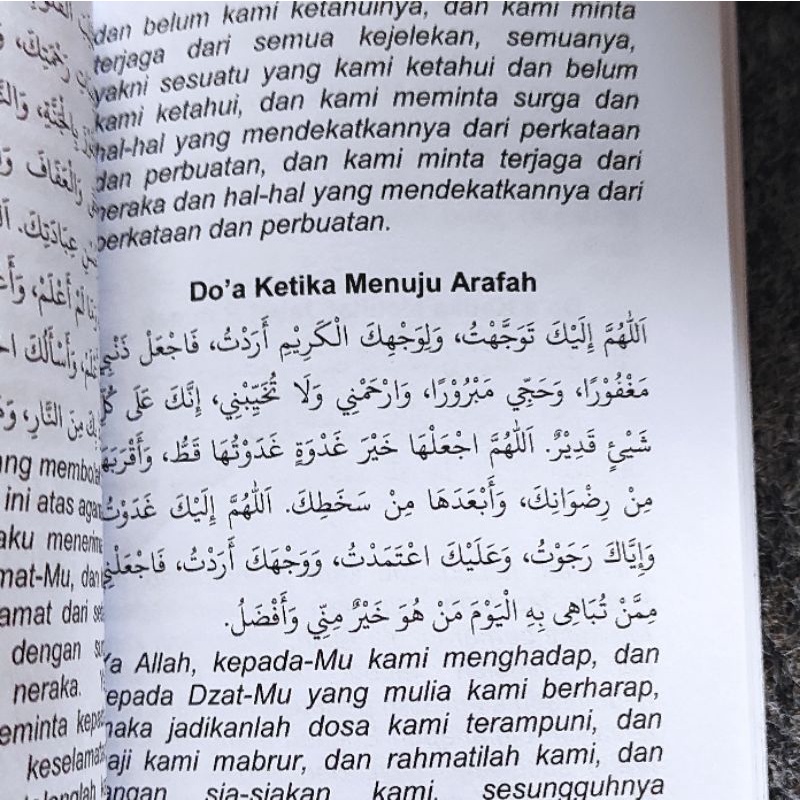 dan belum kami ketahuinya, dan kami minta
terjaga dari semua kejelekan, semuanya,
yakni sesuatu yang kami ketahui dan belum
kami ketahui, dan kami meminta surga dan
hal-hal yang mendekatkannya dari perkataan
dan perbuatan, dan kami minta terjaga dari
neraka dan hal-hal yang mendekatkannya dari
perkataan dan perbuatan.
Do'a Ketika Menuju Arafah
اَللّٰهُمَّ إِلَيْكَ تَوَجَّهْتُ، وَلِوَجْهِكَ الْكَرِيْمِ أَرَدْتُ، فَاجْعَلْ ذَنْبِي
مَغْفُوْرًا، وَحَجِّي مَبْرُوْرًا، وَارْحَمْنِي وَلَا تُخَيِّبْنِي، إِنَّكَ عَلَى كُلِّ
شَيْئٍ قَدِيْرٌ. اَللّٰهُمَّ اجْعَلْهَا خَيْرَ غَدْوَةٍ غَدَوْتُهَا قَطُّ، وَأَقْرَبَهَا
مِنْ رِضْوَانِكَ، وَأَبْعَدَهَا مِنْ سَخَطِكَ. اَللّٰهُمَّ إِلَيْكَ غَدَوْتُ
وَإِيَّاكَ رَجَوْتُ، وَعَلَيْكَ اعْتَمَدْتُ، وَوَجْهَكَ أَرَدْتُ، فَاجْعَلْنِي
مِمَّنْ تُبَاهِى بِهِ الْيَوْمَ مَنْ هُوَ خَيْرٌ مِنِّي وَأَفْضَلُ.
Ya Allah, kepada-Mu kami menghadap, dan
kepada Dzat-Mu yang mulia kami berharap,
maka jadikanlah dosa kami terampuni, dan
haji kami mabrur, dan rahmatilah kami, dan
jangan sia-siakan kami, sesungguhnya